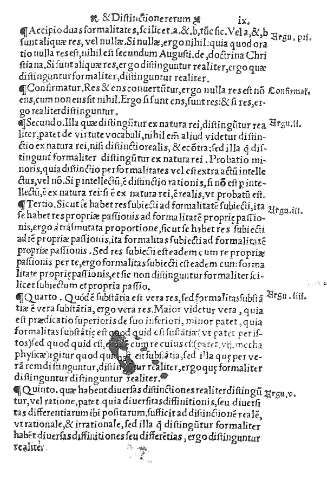 & Distinctione rerum ix.
¶Accipio duas formalitates, scilicet .a. & .b. tũc sic. Vel a, & b, Argu. pri.
sunt aliquæ res, vel nullæ. Si nullæ, ergo nihil: quia quod ora
tio nulla res est, nihil est secundum August. de, doctrina Chri
stiana, Si sunt aliquæ res, ergo distinguuntur realiter, ergo quæ
distinguuntur formaliter, distinguuntur realiter.
¶Confirmatur. Res & ens cõuertũtur, ergo nulla res est nõ Confirmat.
ens, cum non ens sit nihil. Ergo si sunt ens, sunt res: & si res, er-
go realiter distinguuntur.
¶Secundo. Illa quæ distinguũtur ex natura rei, distinguũtur rea Argu. ii.
liter, patet de virtute vocabuli, nihil em̃ aliud videtur distin-
ctio ex natura rei, nisi distinctio realis, & ecõtra: sed illa q̃ di-
stinguunt formaliter distinguũtur ex natura rei. Probatio mi
noris, quia distinctio per formalitates vel est extra actũ intelle
ctus, vel nõ. Si p intellectũ, ẽ distinctio rationis, si nõ est p inte-
llectũ, ẽ ex natura rei: si ẽ ex natura rei, ẽ realis, vt probatũ est.
¶Tertio. Sicut se habet res subiecti ad formalitatẽ subiecti, ita Argu. iii.
se habet res propriæ passionis ad formalitatẽ propriæ passio-
nis, ergo a trãsmutata proportione, sicut se habet res subiecti
ad rẽ propriæ passionis, ita formalitas subiecti ad formalitatẽ
propriæ passionis. Sed res subiecti est eadem cum re propriæ
passionis per te, ergo formalitas subiecti est eadem cum forma
litate propriæ passionis, et sic non distinguuntur formaliter sci-
licet subiectum et propria passio.
¶Quarto. Quodcũ substãtia est vera res, sed formalitas substã Argu. iiii.
tiæ ẽ vera substãtia, ergo vera res. Maior videtur vera, quia
est prædicatio superioris de suo inferiori, minor patet, quia
formalitas substãtiæ est quod substãtiæ vt patet per is-
tos) sed quod cuius est (patet vij. metha
physicæ) igitur quod substãtia, sed illa quæ per ve-
rã rem distinguũtur, distinguũtur realiter, ergo quæ formaliter
distinguuntur distinguuntur realiter.
¶Quinto, quæ habent diuersas distinctiones realiter distinguũ Argu. v.
tur, vel ratione, patet. quia diuersitas diffinitionis, seu diuersi
tas differentiarum ibi positarum, sufficit ad distinctionẽ realẽ,
vt rationale, & irrationale, sed illa q̃ distinguũtur formaliter
habẽt diuersas diffinitiones seu differẽtias, ergo distinguuntur
realiter